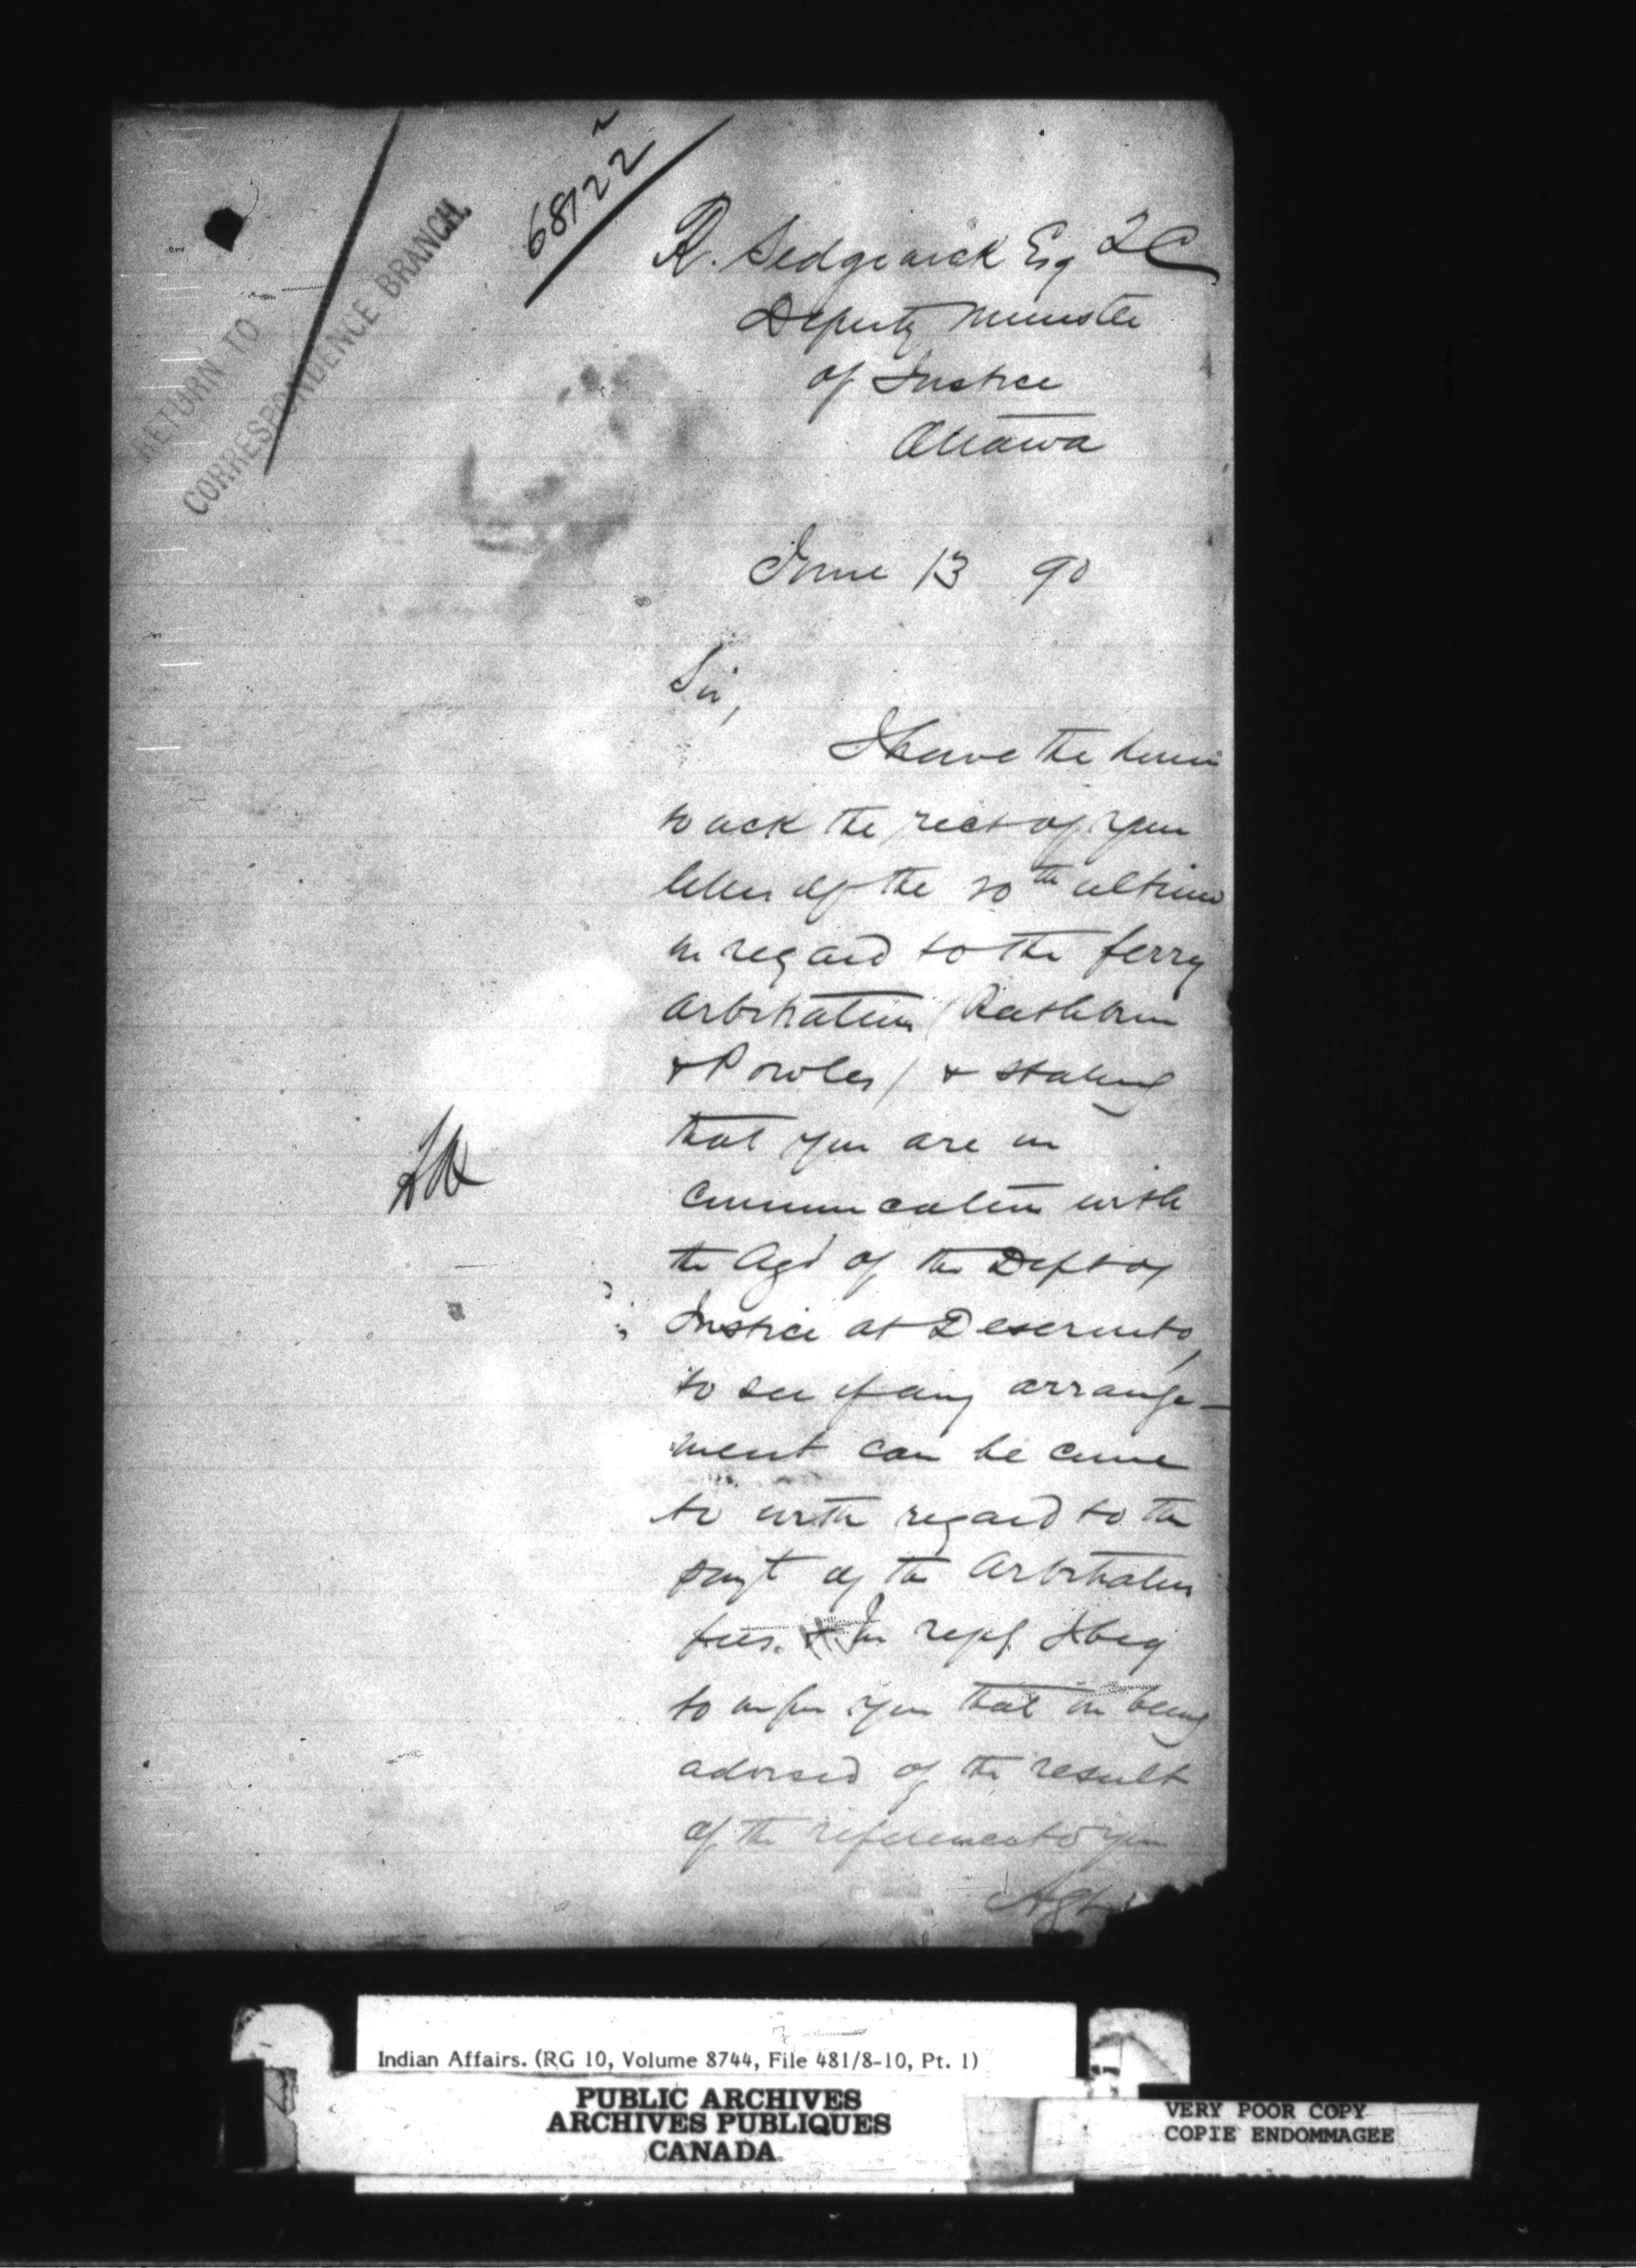 68122
RETURN TO
CORRESPONDENCE BRANCH.
R. Sedgewick Esq QC
Deputy Minister
of Justice
Ottawa
June 13 90
Sir,
I have the honor
to ack the rect of your
letter of the ultimo
in regard to the ferry
arbitration (Rathbun
& Powles) & stating
that you are in
communication with
the Agt of the Dept of
Justice at Deseronto,
to see if any arrange-
ment can be come
to with regard to the
paymt of the Arbitration
fees. In reply I beg
to infm you that on being
advised of the result
of the reference to your
Agt
Indian Affairs. (RG 10, Volume 8744, File 481/8-10, Pt. 1)
PUBLIC ARCHIVES
ARCHIVES PUBLIQUES
CANADA
VERY POOR COPY
COPIE ENDOMMAGEE